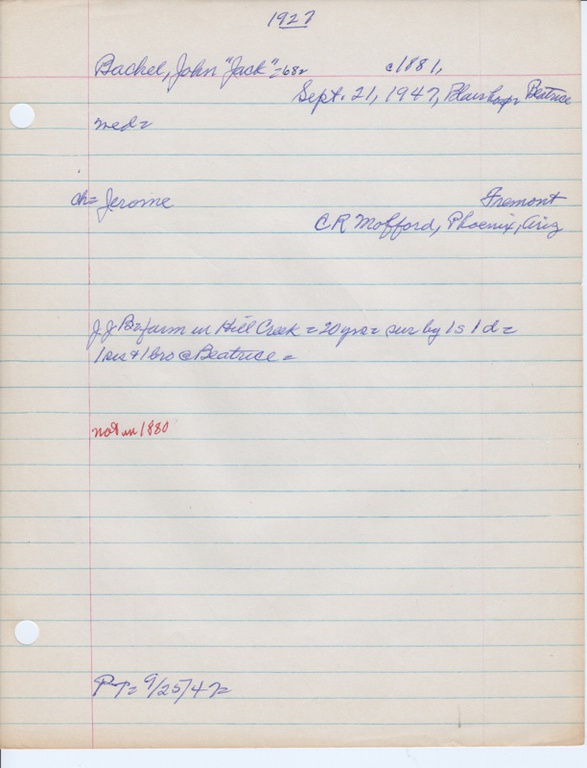 1927
Bachel, John "Jack" =68= c1881,
Sept. 21, 1947, Beatrice
med=
ch= Jerome Fremont
CR Mofford, Phoenix, Ariz
J.J B=farm in Hill Creek = 20 yrs = sur by 1 s 1 d =
1 sis & 1 bro @ Beatrice =
not in 1880
PT= 9/25/47=